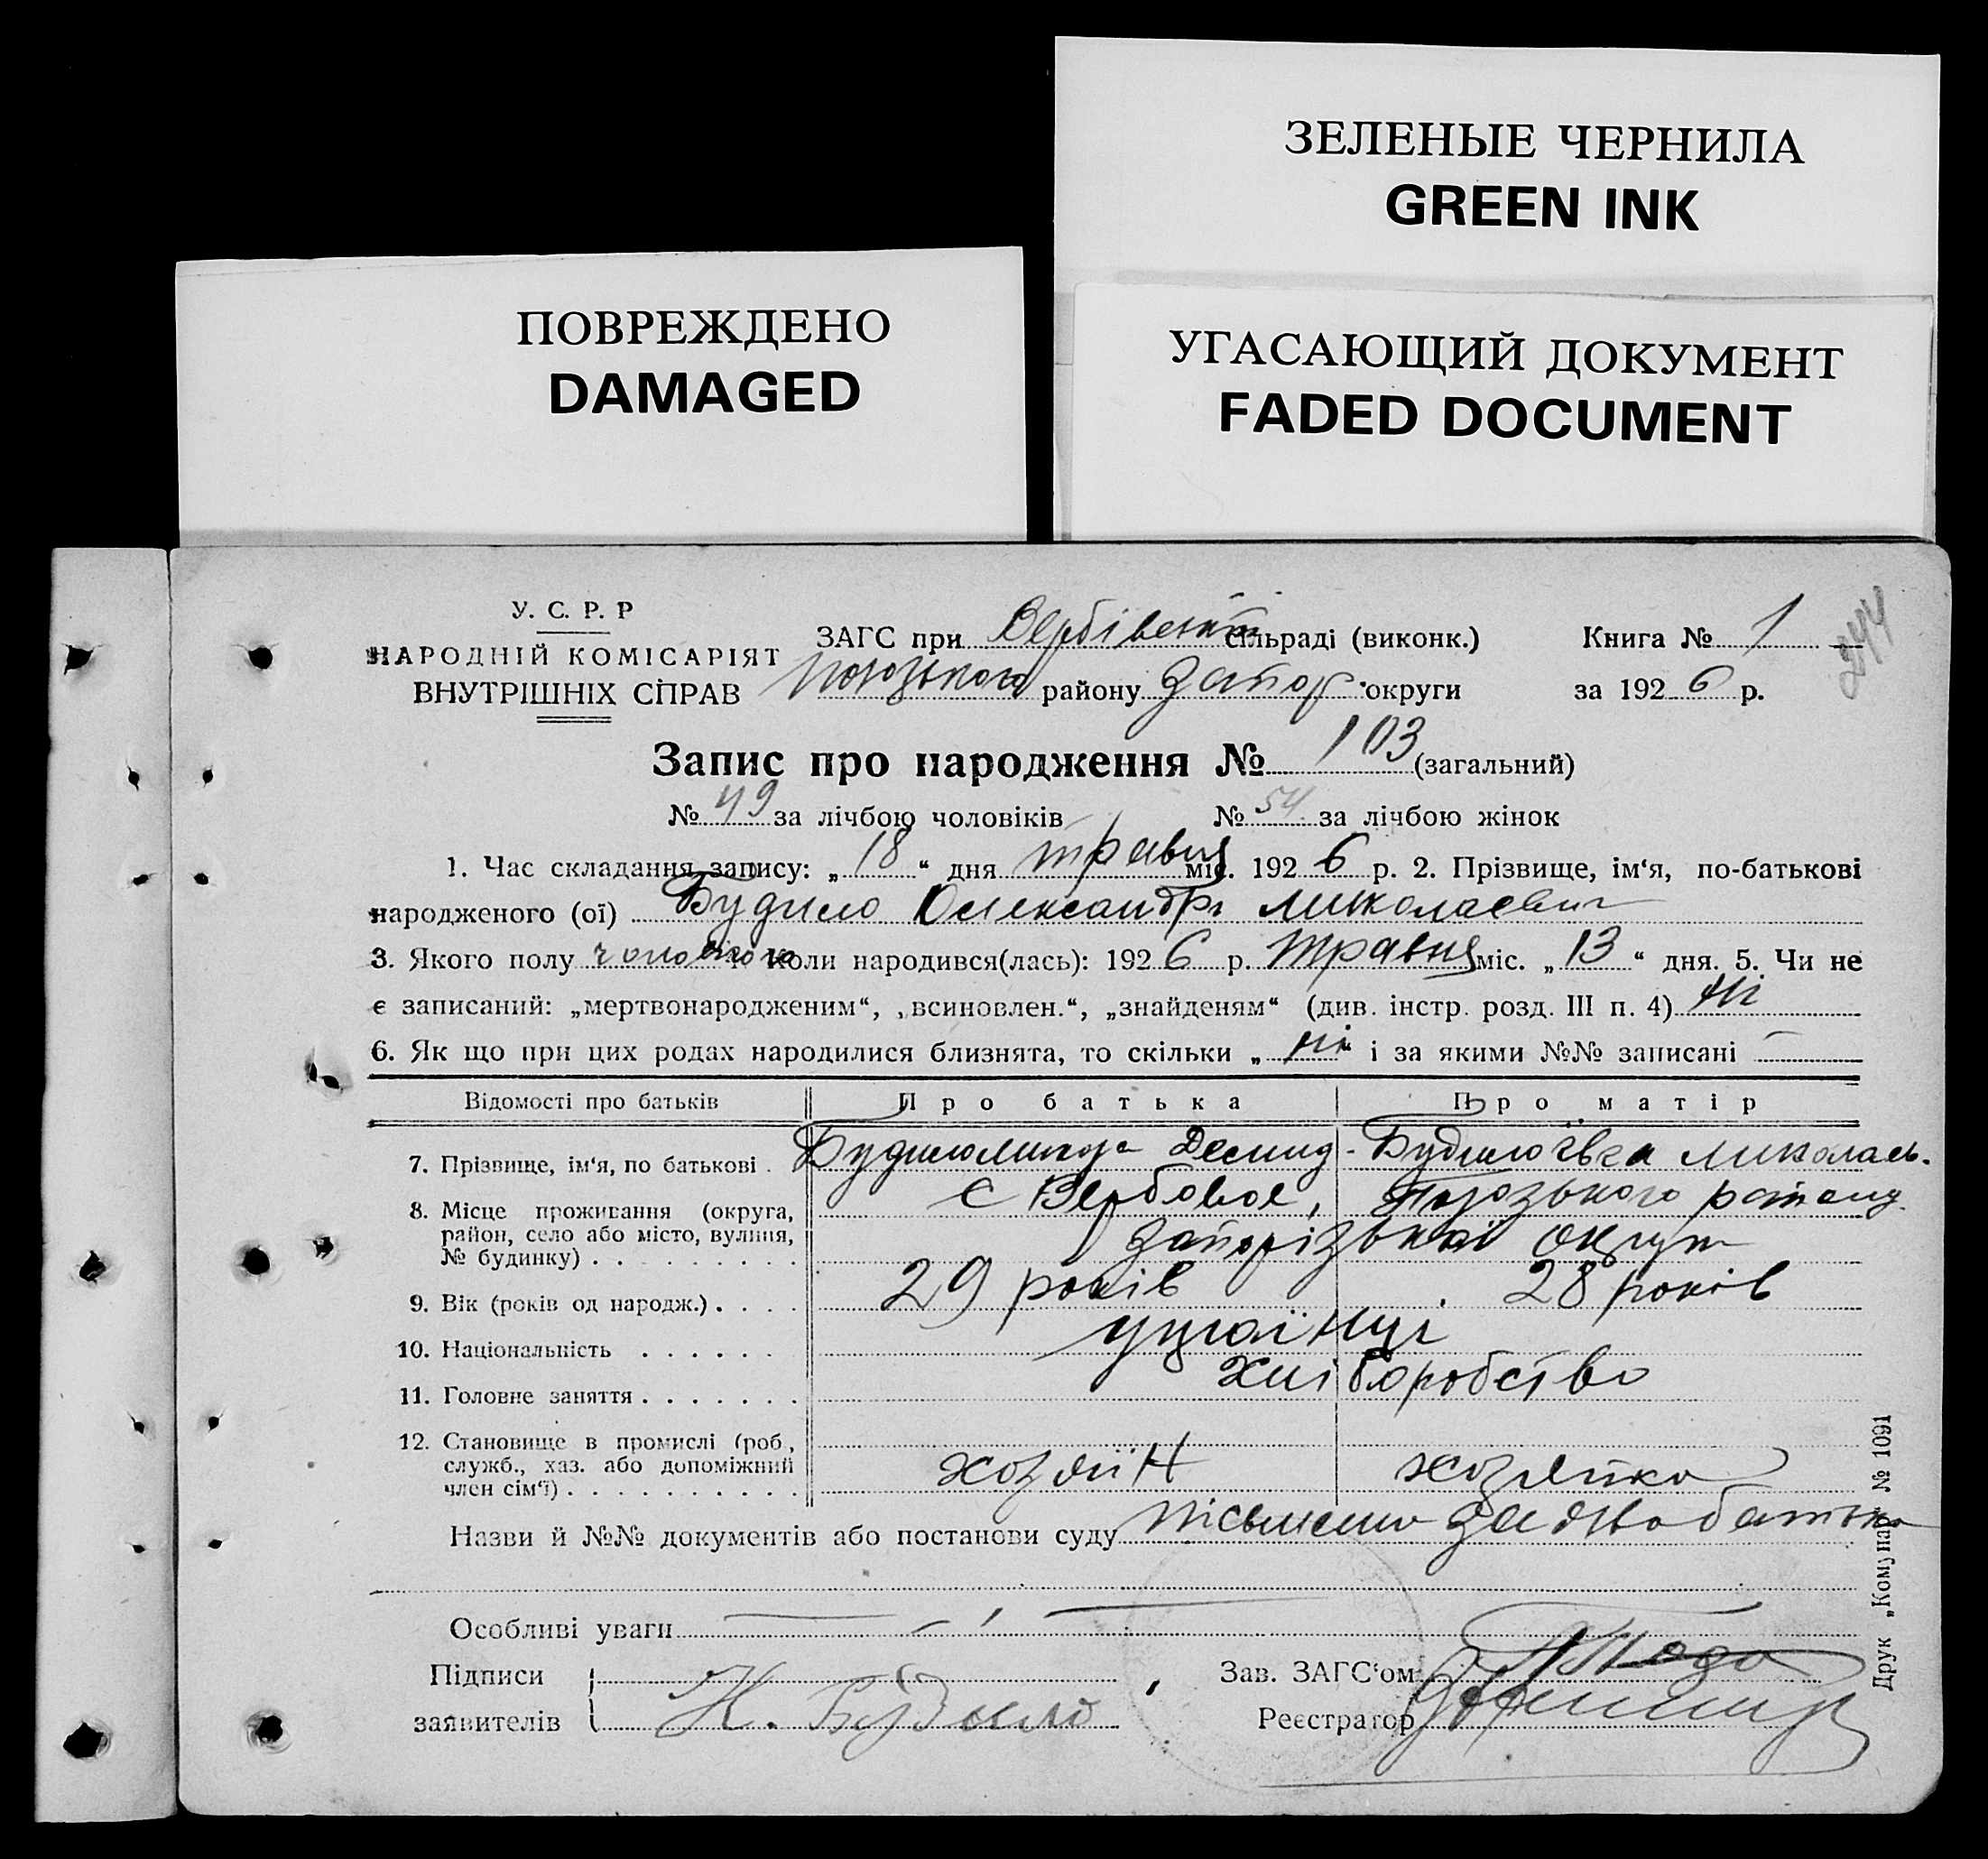 ЗЕЛЕНЫЕ ЧЕРНИЛА
GREEN INK
ПОВРЕЖДЕНО
DAMAGED
УГАСАЮЩИЙ ДОКУМЕНТ
FADED DOCUMENT
244
У. С. Р. Р
НАРОДНІЙ КОМІСАРІЯТ
ВНУТРІШНІХ СПРАВ
ЗАГС при Вербівській сільраді (виконк.)
району Запор. округи
Книга № 1
за 1926 р.
Запис про народження № 103 (загальний)
№ 49 за лічбою чоловіків № 54 за лічбою жінок
1. Час складання запису: „18“ дня травня міс. 1926 р. 2. Прізвище, ім‘я, по-батькові
народженого (ої) Будило Олександр Миколаевич
3. Якого полу чоловічого Коли народився(лась): 1926 р. травня міс. „13“ дня. 5. Чи не
є записаний: „мертвонародженим“, „всиновлен.“, „знайденям“ (див. інстр. розд. III п. 4) ні
6. Як що при цих родах народилися близнята, то скільки „ні“ і за якими №№ записані —
Відомості про батьків Про батька Про матір
7. Прізвище, ім‘я, по батькові . Будило Демид. Будило Миколаєв.
8. Місце проживання (округа, район, село або місто, вулиця, № будинку) . . . . . . . . . с Вербове, Запорізької округи
9. Вік (років од народж.) . . . . 29 років 28 років
10. Національність . . . . . . українці
11. Головне заняття . . . . . . . хліборобство
12. Становище в промислі (роб., служб., хаз. або допоміжний член сім‘ї) . . . . . . . . . . хозяїн хозяйка
Назви й №№ документів або постанови суду батька
Особливі уваги
Підписи
заявителів Н. Будило
Зав. ЗАГС‘ом
Реєстратор
Друк „Комунар“ № 1091